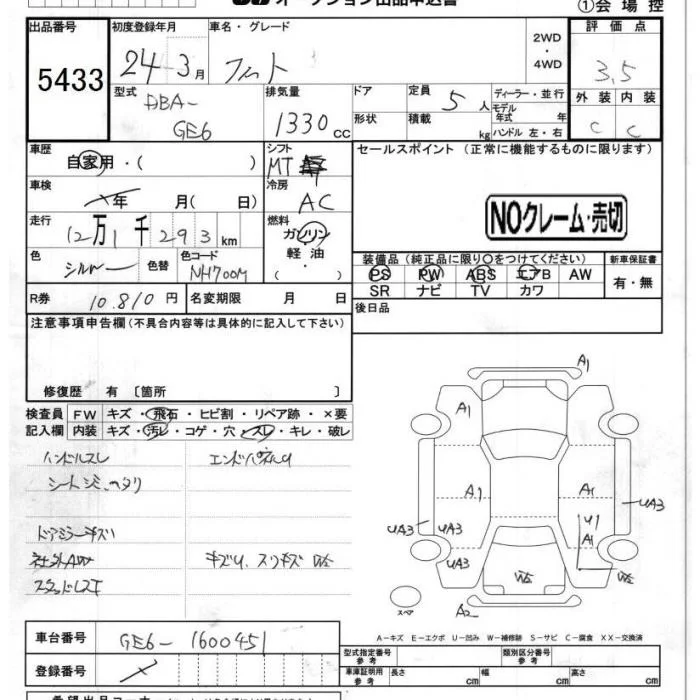 オークション出品申込書
①会場控
出品番号 初度登録年月 車名・グレード 2WD・4WD 評価点
5433 24-3月 フィット 3.5
型式 DBA-GE6 排気量 1330cc ドア 形状 定員 5人 積載 kg ディーラー・並行 モデル年式 年 ハンドル 左・右 外装 内装
C C
車歴 自家用・( ) シフト MT セールスポイント (正常に機能するものに限ります)
車検 年 月( 日) 冷房 AC
NOクレーム・売切
走行 12万1千293km 燃料 ガソリン・軽油・( )
色 シルバー 色替 色コード NH700M
装備品 (純正品に限り○をつけてください) 新車保証書
PS PW ABS エアB AW 有・無
SR ナビ TV カワ
R券 10.810円 名変期限 月 日 後日品
注意事項申告欄(不具合内容等は具体的に記入して下さい)
修復歴 有 〔箇所 〕
検査員 FW キズ・飛石・ヒビ割・リペア跡・×要
記入欄 内装 キズ・汚レ・コゲ・穴・スレ・キレ・破レ
ハンドルスレ エンドパネルU
シートシミ、ヘタリ
ドアミラーキズ
社外AW キズU、スリキズ W2
スタッドレスT
A1
A1
A1 A1 UA3
UA3 UA3 U1
A1
UA3 W2 W2
スペア A2
A-キズ E-エクボ U-凹み W-補修跡 S-サビ C-腐食 XX-交換済
車台番号 GE6-1600451
型式指定番号 参考 類別区分番号 参考
登録番号
車庫証明用 参考 長さ cm 幅 cm 高さ cm
希望出品コーナー